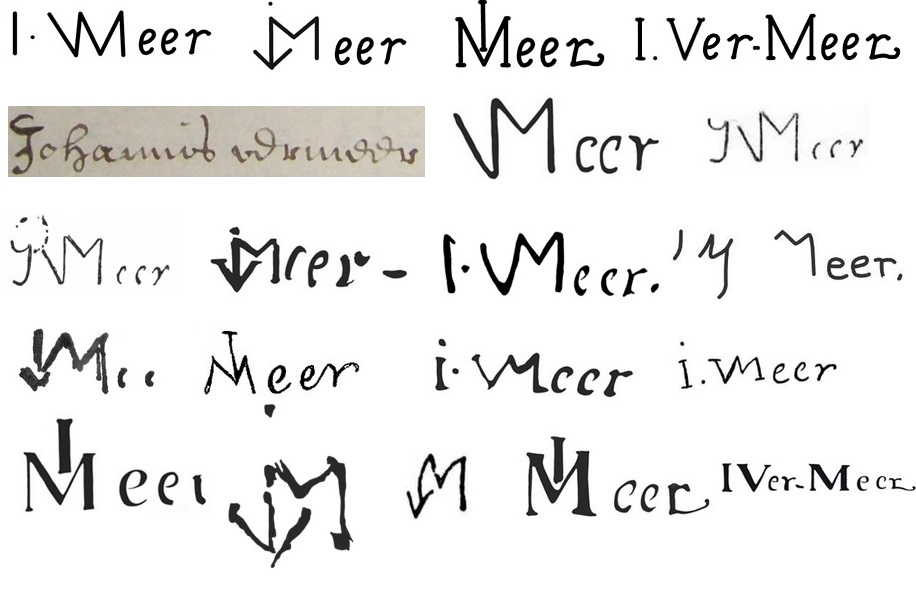 I. VMeer IVMeer IVMeer I. Ver-Meer
Johannis vermeer VMeer JVMeer
JVMeer IVMeer- I. VMeer. Meer.
Mee IMeer i. VMeer i. VMeer
IMeer IVM VM IVMeer IVer-Meer